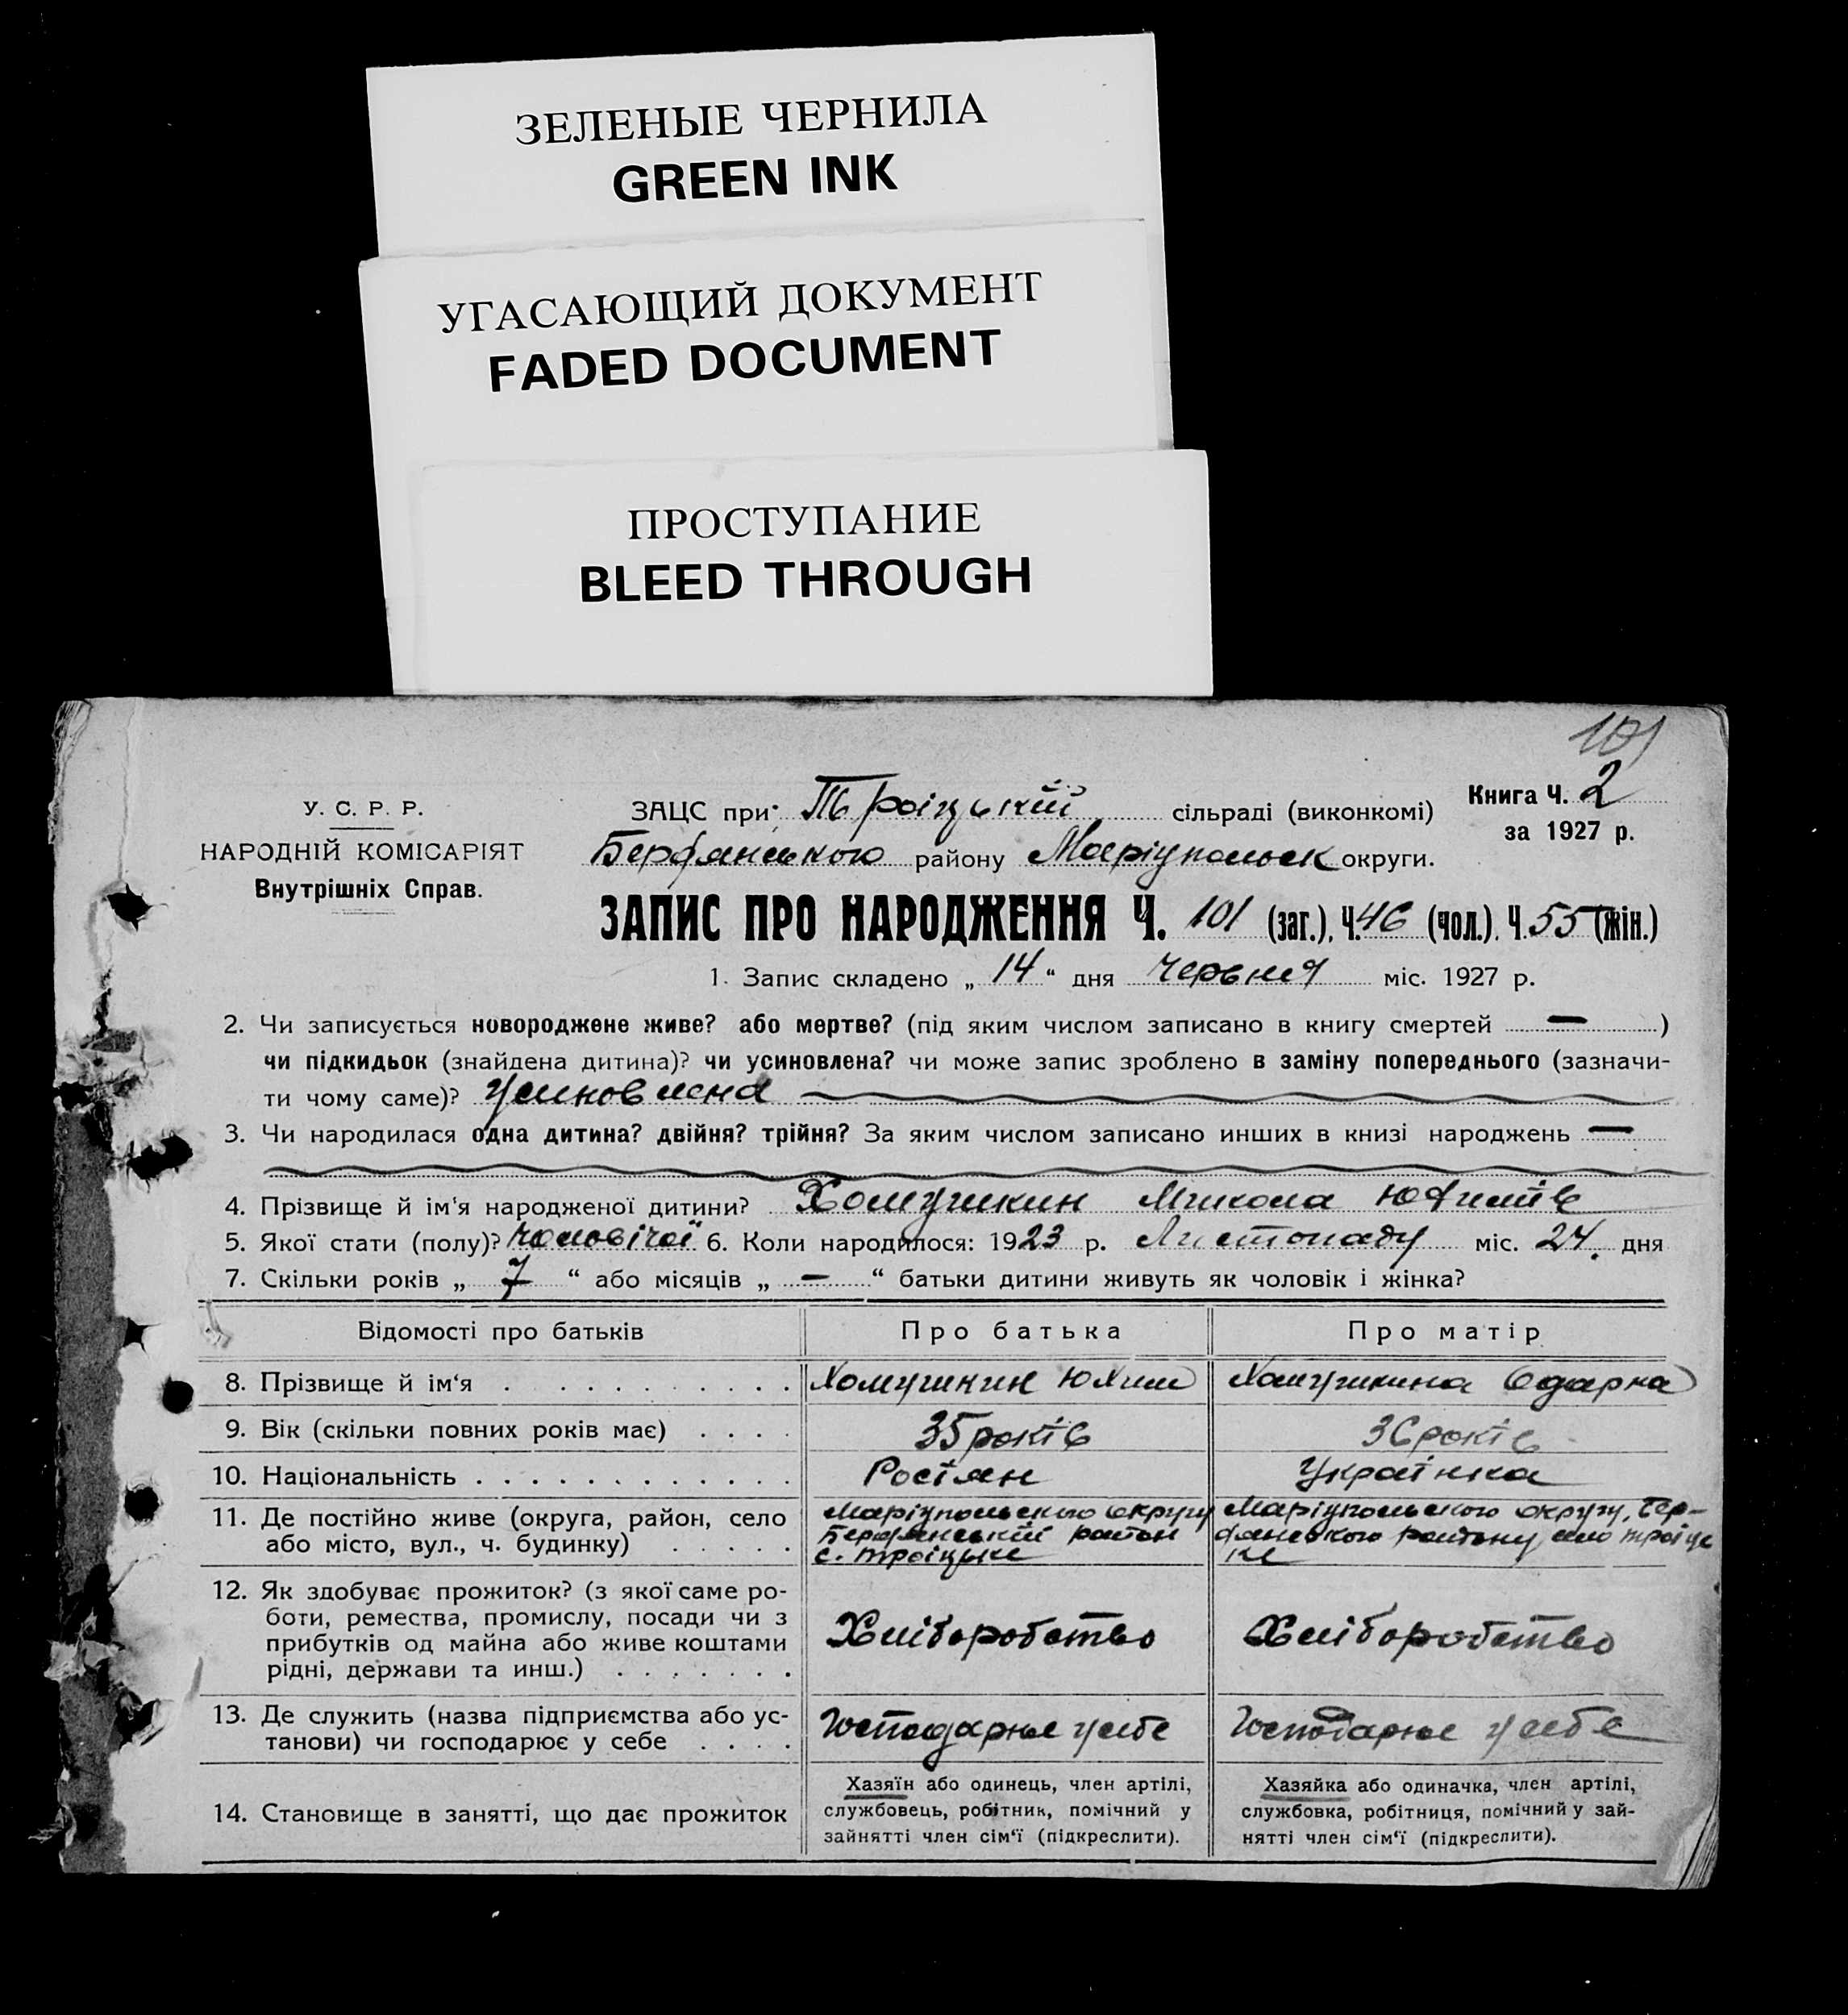 ЗЕЛЕНЫЕ ЧЕРНИЛА
GREEN INK
УГАСАЮЩИЙ ДОКУМЕНТ
FADED DOCUMENT
ПРОСТУПАНИЕ
BLEED THROUGH
101
У. С. Р. Р.
НАРОДНІЙ КОМІСАРІЯТ
Внутрішніх Справ.
ЗАЦС при Троіцькій сільраді (виконкомі)
Бердянського району Маріупольськ округи.
Книга Ч. 2
за 1927 р.
ЗАПИС ПРО НАРОДЖЕННЯ Ч. 101 (заг.), Ч. 46 (чол.). Ч. 55 (жін.)
1. Запис складено „ 14 “ дня Червня міс. 1927 р.
2. Чи записується новороджене живе? або мертве? (під яким числом записано в книгу смертей — )
чи підкидьок (знайдена дитина)? чи усиновлена? чи може запис зроблено в заміну попереднього (зазначи-
ти чому саме)? Усиновлена
3. Чи народилася одна дитина? двійня? трійня? За яким числом записано инших в книзі народжень —
4. Прізвище й ім'я народженої дитини? Хомушкин Микола
5. Якої стати (полу)? Чоловічої 6. Коли народилося: 1923 р. Листопаду міс. 24. дня
7. Скільки років „ 7 “ або місяців „ — “ батьки дитини живуть як чоловік і жінка?
Відомості про батьків
Про батька
Про матір
8. Прізвище й ім'я
Хомушкин Юхим
Хомушкина Одарка
9. Вік (скільки повних років має)
35 років
36 років
10. Національність
Росіян
Українка
11. Де постійно живе (округа, район, село
або місто, вул., ч. будинку)
Маріупольського округу
Бердянській район
с. Троіцьке
Маріупольського округу, Бер-
дянського району село Троіць
ке
12. Як здобуває прожиток? (з якої саме ро-
боти, ремества, промислу, посади чи з
прибутків од майна або живе коштами
рідні, держави та инш.)
Хліборобство
Хліборобство
13. Де служить (назва підприємства або ус-
танови) чи господарює у себе
Господарює у себе
Господарює у себе
14. Становище в занятті, що дає прожиток
Хазяїн або одинець, член артілі,
службовець, робітник, помічний у
зайнятті член сім'ї (підкреслити).
Хазяйка або одиначка, член артілі,
службовка, робітниця, помічний у зай-
нятті член сім'ї (підкреслити).